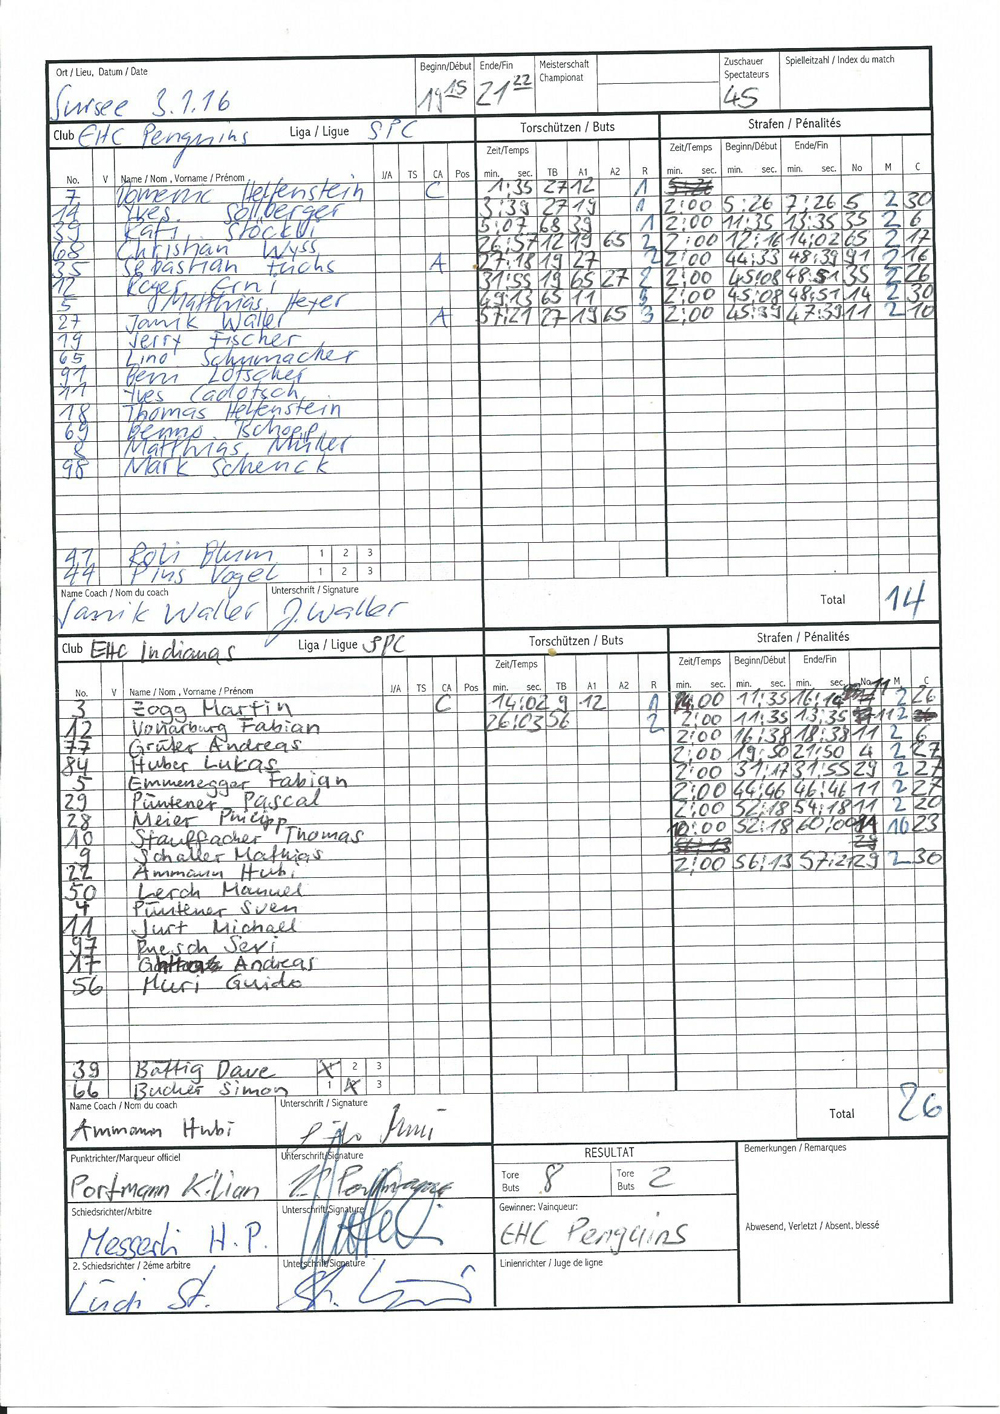 Ort / Lieu, Datum / Date Beginn/Début Ende/Fin Meisterschaft Championat Zuschauer Spectateurs Spielleitzahl / Index du match
Sursee 3.1.16 19 15 21 22 45
Club EHC Penguins Liga / Ligue SPC Torschützen / Buts Strafen / Pénalités
Zeit/Temps Zeit/Temps Beginn/Début Ende/Fin
No. V Name / Nom , Vorname / Prénom J/A TS CA Pos min. sec. TB A1 A2 R min. sec. min. sec. min. sec. No M C
7 Domenic Helfenstein C 1:35 27 12 1
14 Yves Sollberger 3:39 27 19 1 2:00 5:26 7:26 5 2 30
39 Kafi Stöckli 5:07 68 39 1 2:00 11:35 13:35 35 2 6
68 Christian Wyss 26:57 12 19 65 2 2:00 12:16 14:02 65 2 17
35 Sebastian Fuchs A 27:18 19 27 2 2:00 44:33 48:39 91 2 16
12 Roger Erni 31:55 19 65 27 2 2:00 45:08 48:51 35 2 26
5 Matthias Heyer 49:13 65 11 3 2:00 45:08 48:51 14 2 30
27 Janik Waller A 57:21 27 19 65 3 2:00 45:39 47:39 11 2 10
19 Jerry Fischer
65 Lino Schumacher
91 Beni Lötscher
11 Yves Cadotsch
18 Thomas Helfenstein
69 Benno Tschopp
8 Matthias Müller
98 Mark Schenck
91 Roli Blum 1 2 3
44 Pius Vogel 1 2 3
Name Coach / Nom du coach Unterschrift / Signature Total 14
Janik Waller J. Waller
Club EHC Indianas Liga / Ligue SPC Torschützen / Buts Strafen / Pénalités
Zeit/Temps Zeit/Temps Beginn/Début Ende/Fin
No. V Name / Nom , Vorname / Prénom J/A TS CA Pos min. sec. TB A1 A2 R min. sec. min. sec. min. sec. No M C
3 Zogg Martin C 14:02 9 12 1 11:35 16:14 11 2 26
12 Vonarburg Fabian 26:03 56 2 2:00 11:35 13:35 11 2
77 Grüter Andreas 2:00 16:38 18:38 11 2 6
84 Huber Lukas 2:00 19:50 21:50 4 2 27
5 Emmenegger Fabian 2:00 31:17 31:55 29 2 27
29 Püntener Pascal 2:00 44:46 46:46 11 2 27
28 Meier Philipp 2:00 52:18 54:18 11 2 20
10 Stauffacher Thomas 10:00 52:18 60:00 10 23
9 Schaller Mathias
22 Ammann Hubi 2:00 56:13 57:21 29 2 30
50 Lerch Manuel
4 Püntener Sven
11 Jurt Michael
97 Ruesch Sevi
17 Andreas
56 Muri Guido
39 Bättig Dave 2 3
66 Bucher Simon 1 3
Name Coach / Nom du coach Unterschrift / Signature Total 26
Ammann Hubi
Punktrichter/Marqueur officiel Unterschrift/Signature RESULTAT Bemerkungen / Remarques
Portmann Kilian Tore Buts 8 Tore Buts 2
Schiedsrichter/Arbitre Unterschrift/Signature Gewinner: Vainqueur:
Messerli H.P. EHC Penguins Abwesend, Verletzt / Absent, blessé
2. Schiedsrichter / 2éme arbitre Unterschrift/Signature Linienrichter / Juge de ligne
Lüdi St.